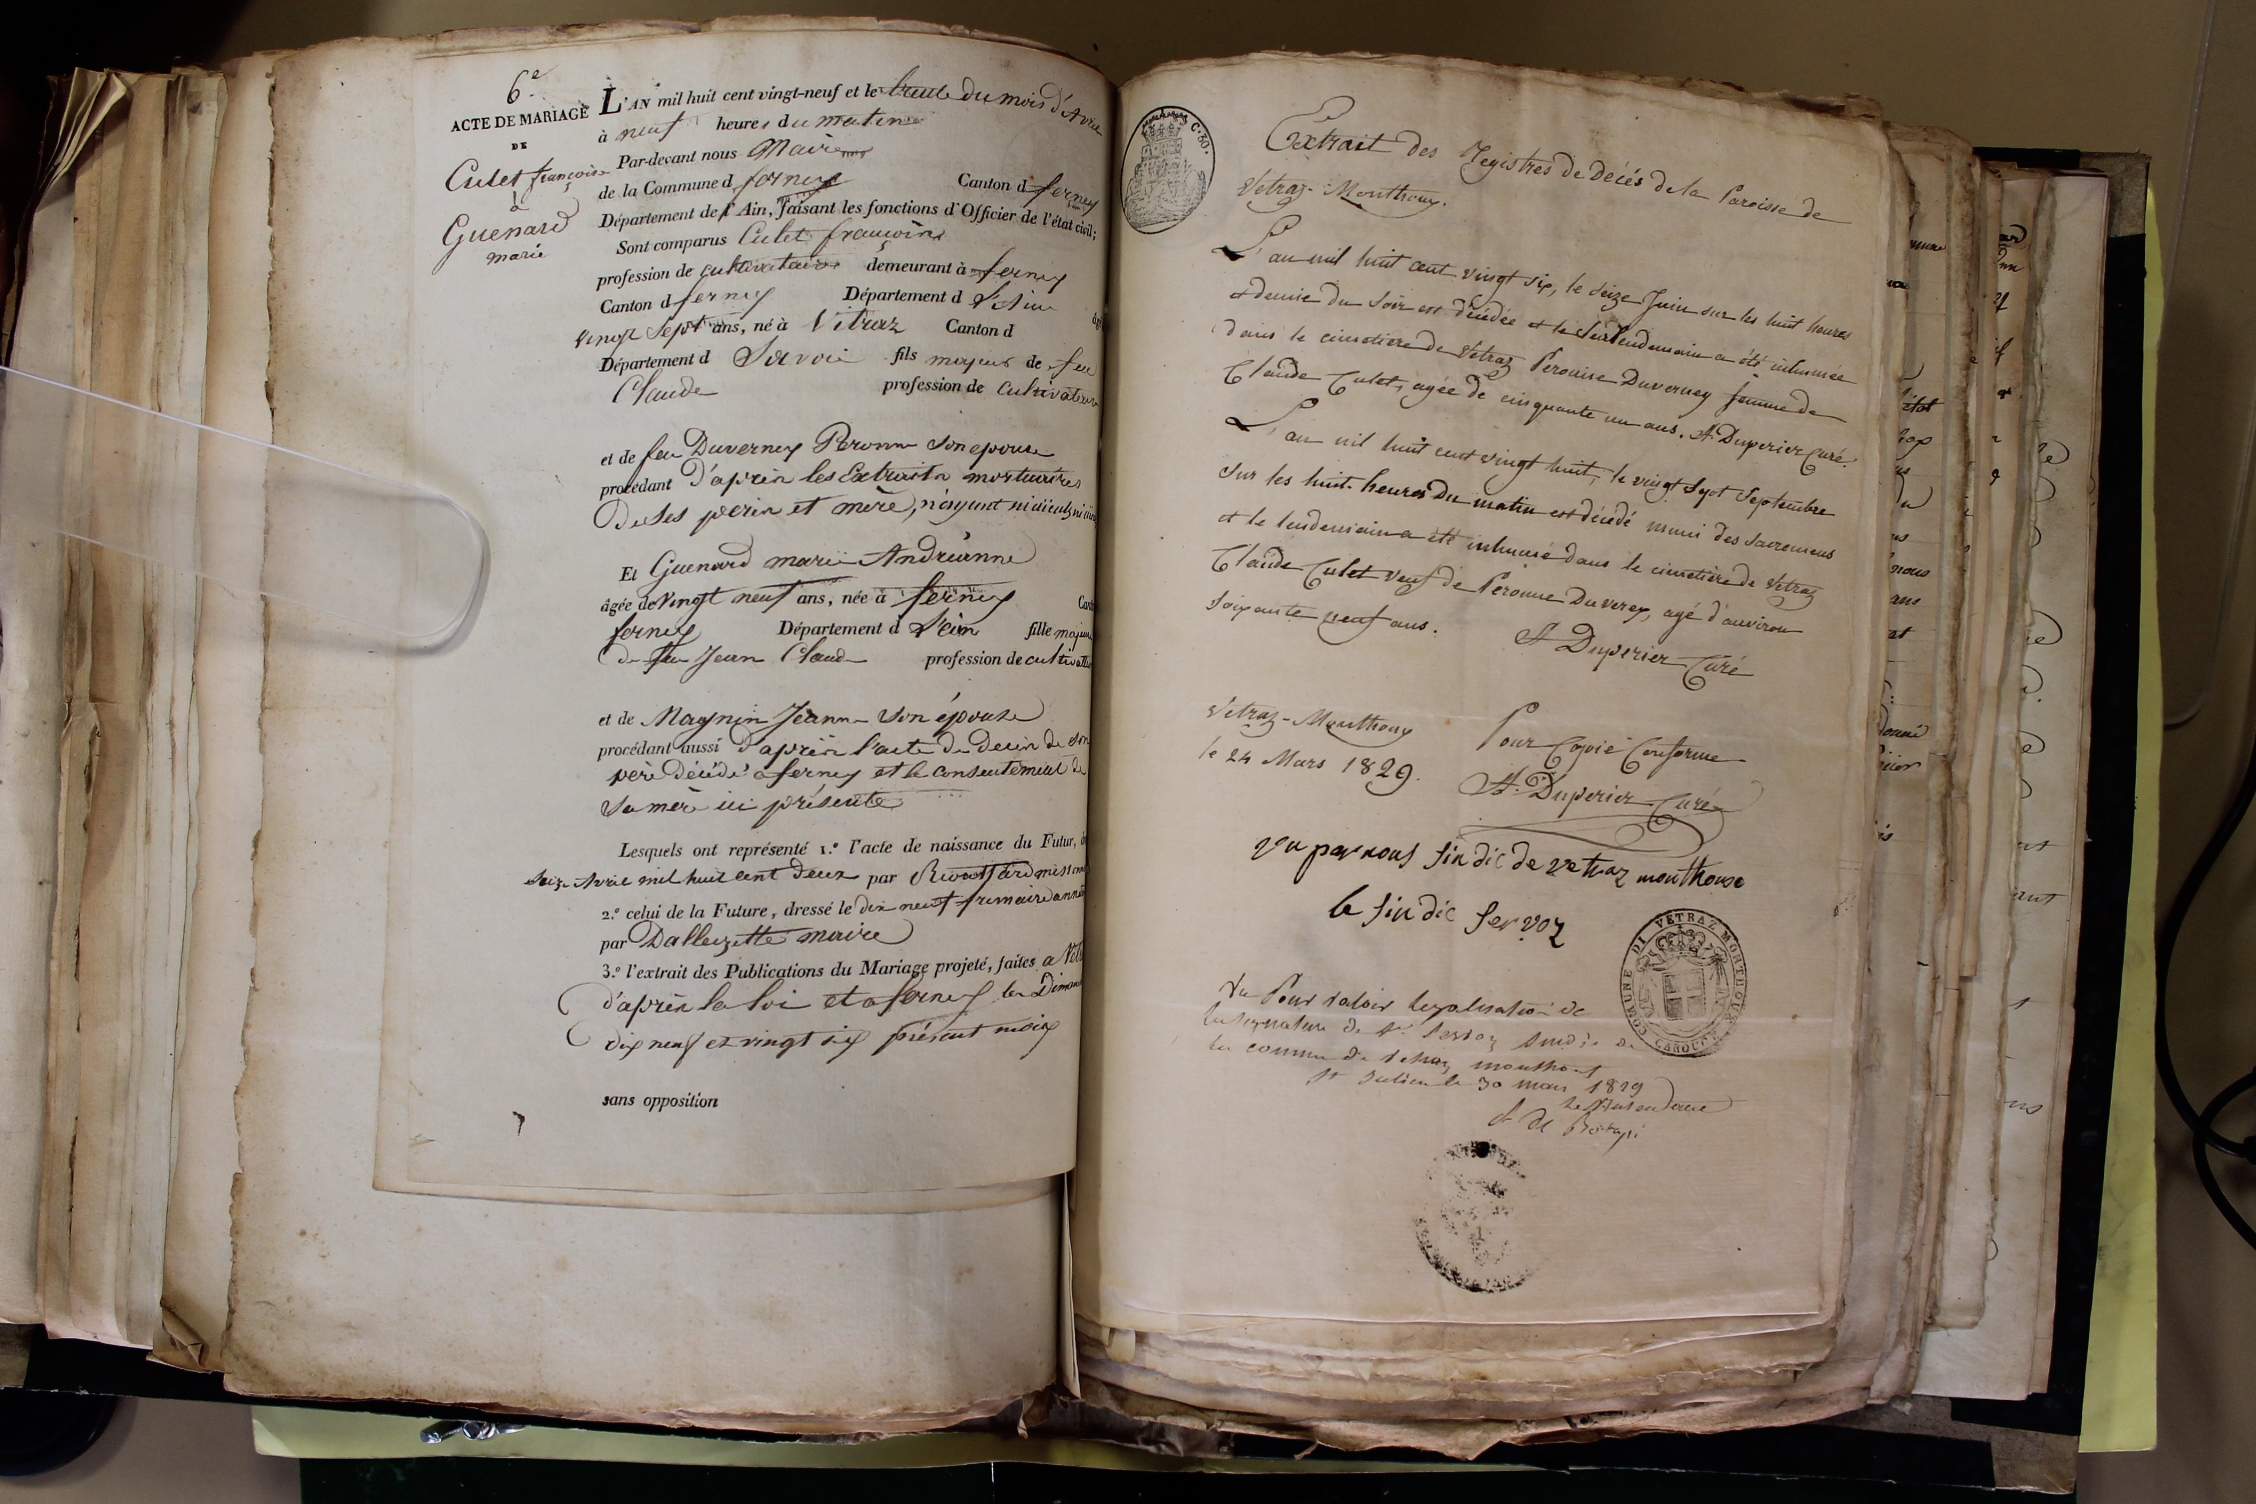 6e
ACTE DE MARIAGE
DE
Culet françois
à
Guenard
marie
L'AN mil huit cent vingt-neuf et le trente du mois d'Avril
à neuf heures du matin
Par-devant nous Maire
de la Commune d ferney Canton d ferney
Département de l'Ain, faisant les fonctions d'Officier de l'état civil;
Sont comparus Culet françois
profession de cultivateur demeurant à ferney
Canton d ferney Département d L'Ain
vingt sept ans, né à Vetraz Canton d
Département d Savoie fils majeur de feu
Claude profession de cultivateur
et de feu Duverney Peronne son epouse
procédant d'après les Extraits mortuaires
de ses père et mère, n'ayant ni aieuls ni
Et Guenard marie Andréanne
âgée de vingt neuf ans, née à ferney
ferney Département d L'ain fille majeure
de feu Jean Claude profession de cultivateur
et de Magnin Jeanne son épouse
procédant aussi d'après l'acte de décès de son
père décédé a ferney et le consentement de
sa mère ici présente
Lesquels ont représenté 1.º l'acte de naissance du Futur,
seize Avril mil huit cent deux par
2.º celui de la Future, dressé le dix neuf frimaire année
par Dalleizette maire
3.º l'extrait des Publications du Mariage projeté, faites a
d'après la loi et a ferney les Dimanches
dix neuf et vingt six présent mois
sans opposition
C. 80.
Extrait des Registres de Décés de la Paroisse de
Vetraz-Monthoux.
L'an mil huit cent vingt six, le seize Juin sur les huit heures
et demie du Soir est décédée et le lendemain a été inhumée
dans le cimetière de Vetraz Peronne Duverney femme de
Claude Culet, agée de cinquante un ans. A. Duperier Curé.
L'an mil huit cent vingt huit, le vingt sept Septembre
sur les huit heures du matin est décédé muni des sacremens
et le lendemain a été inhumé dans le cimetière de Vetraz
Claude Culet veuf de Peronne Duverey, agé d'environ
soixante neuf ans.
A Duperier Curé
Vetraz-Monthoux
le 24 Mars 1829.
Pour Copie Conforme
A. Duperier Curé
Vu par nous sindic de vetraz monthoux
le sindic servoz
COMUNE DI VETRAZ MONTHOUX
CAROUGE
Vu Pour valoir légalisation de
la signature de sr. servoz sindic de
la commune de vetraz monthoux
St Julien le 30 mars 1829